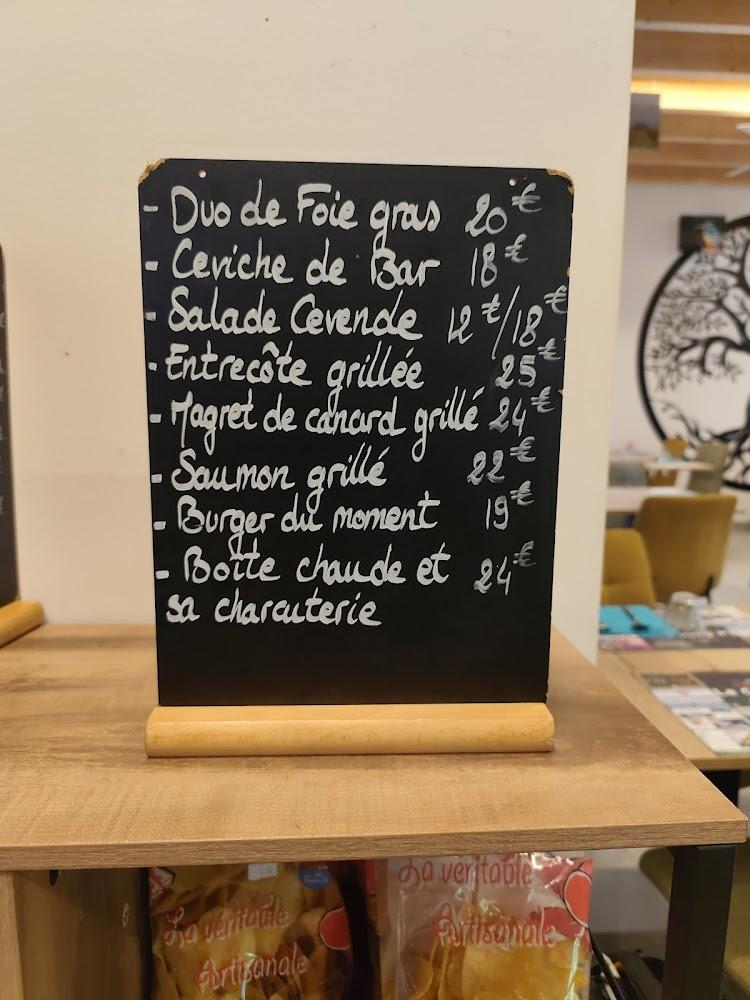 - Duo de Foie gras 20€
- Ceviche de Bar 18€
- Salade Cevenole 12€/18€
- Entrecôte grillée 25€
- Magret de canard grillé 24€
- Saumon grillé 22€
- Burger du moment 19€
- Boîte chaude et 24€
sa charcuterie
La véritable
Artisanale
La véritable
Artisanale